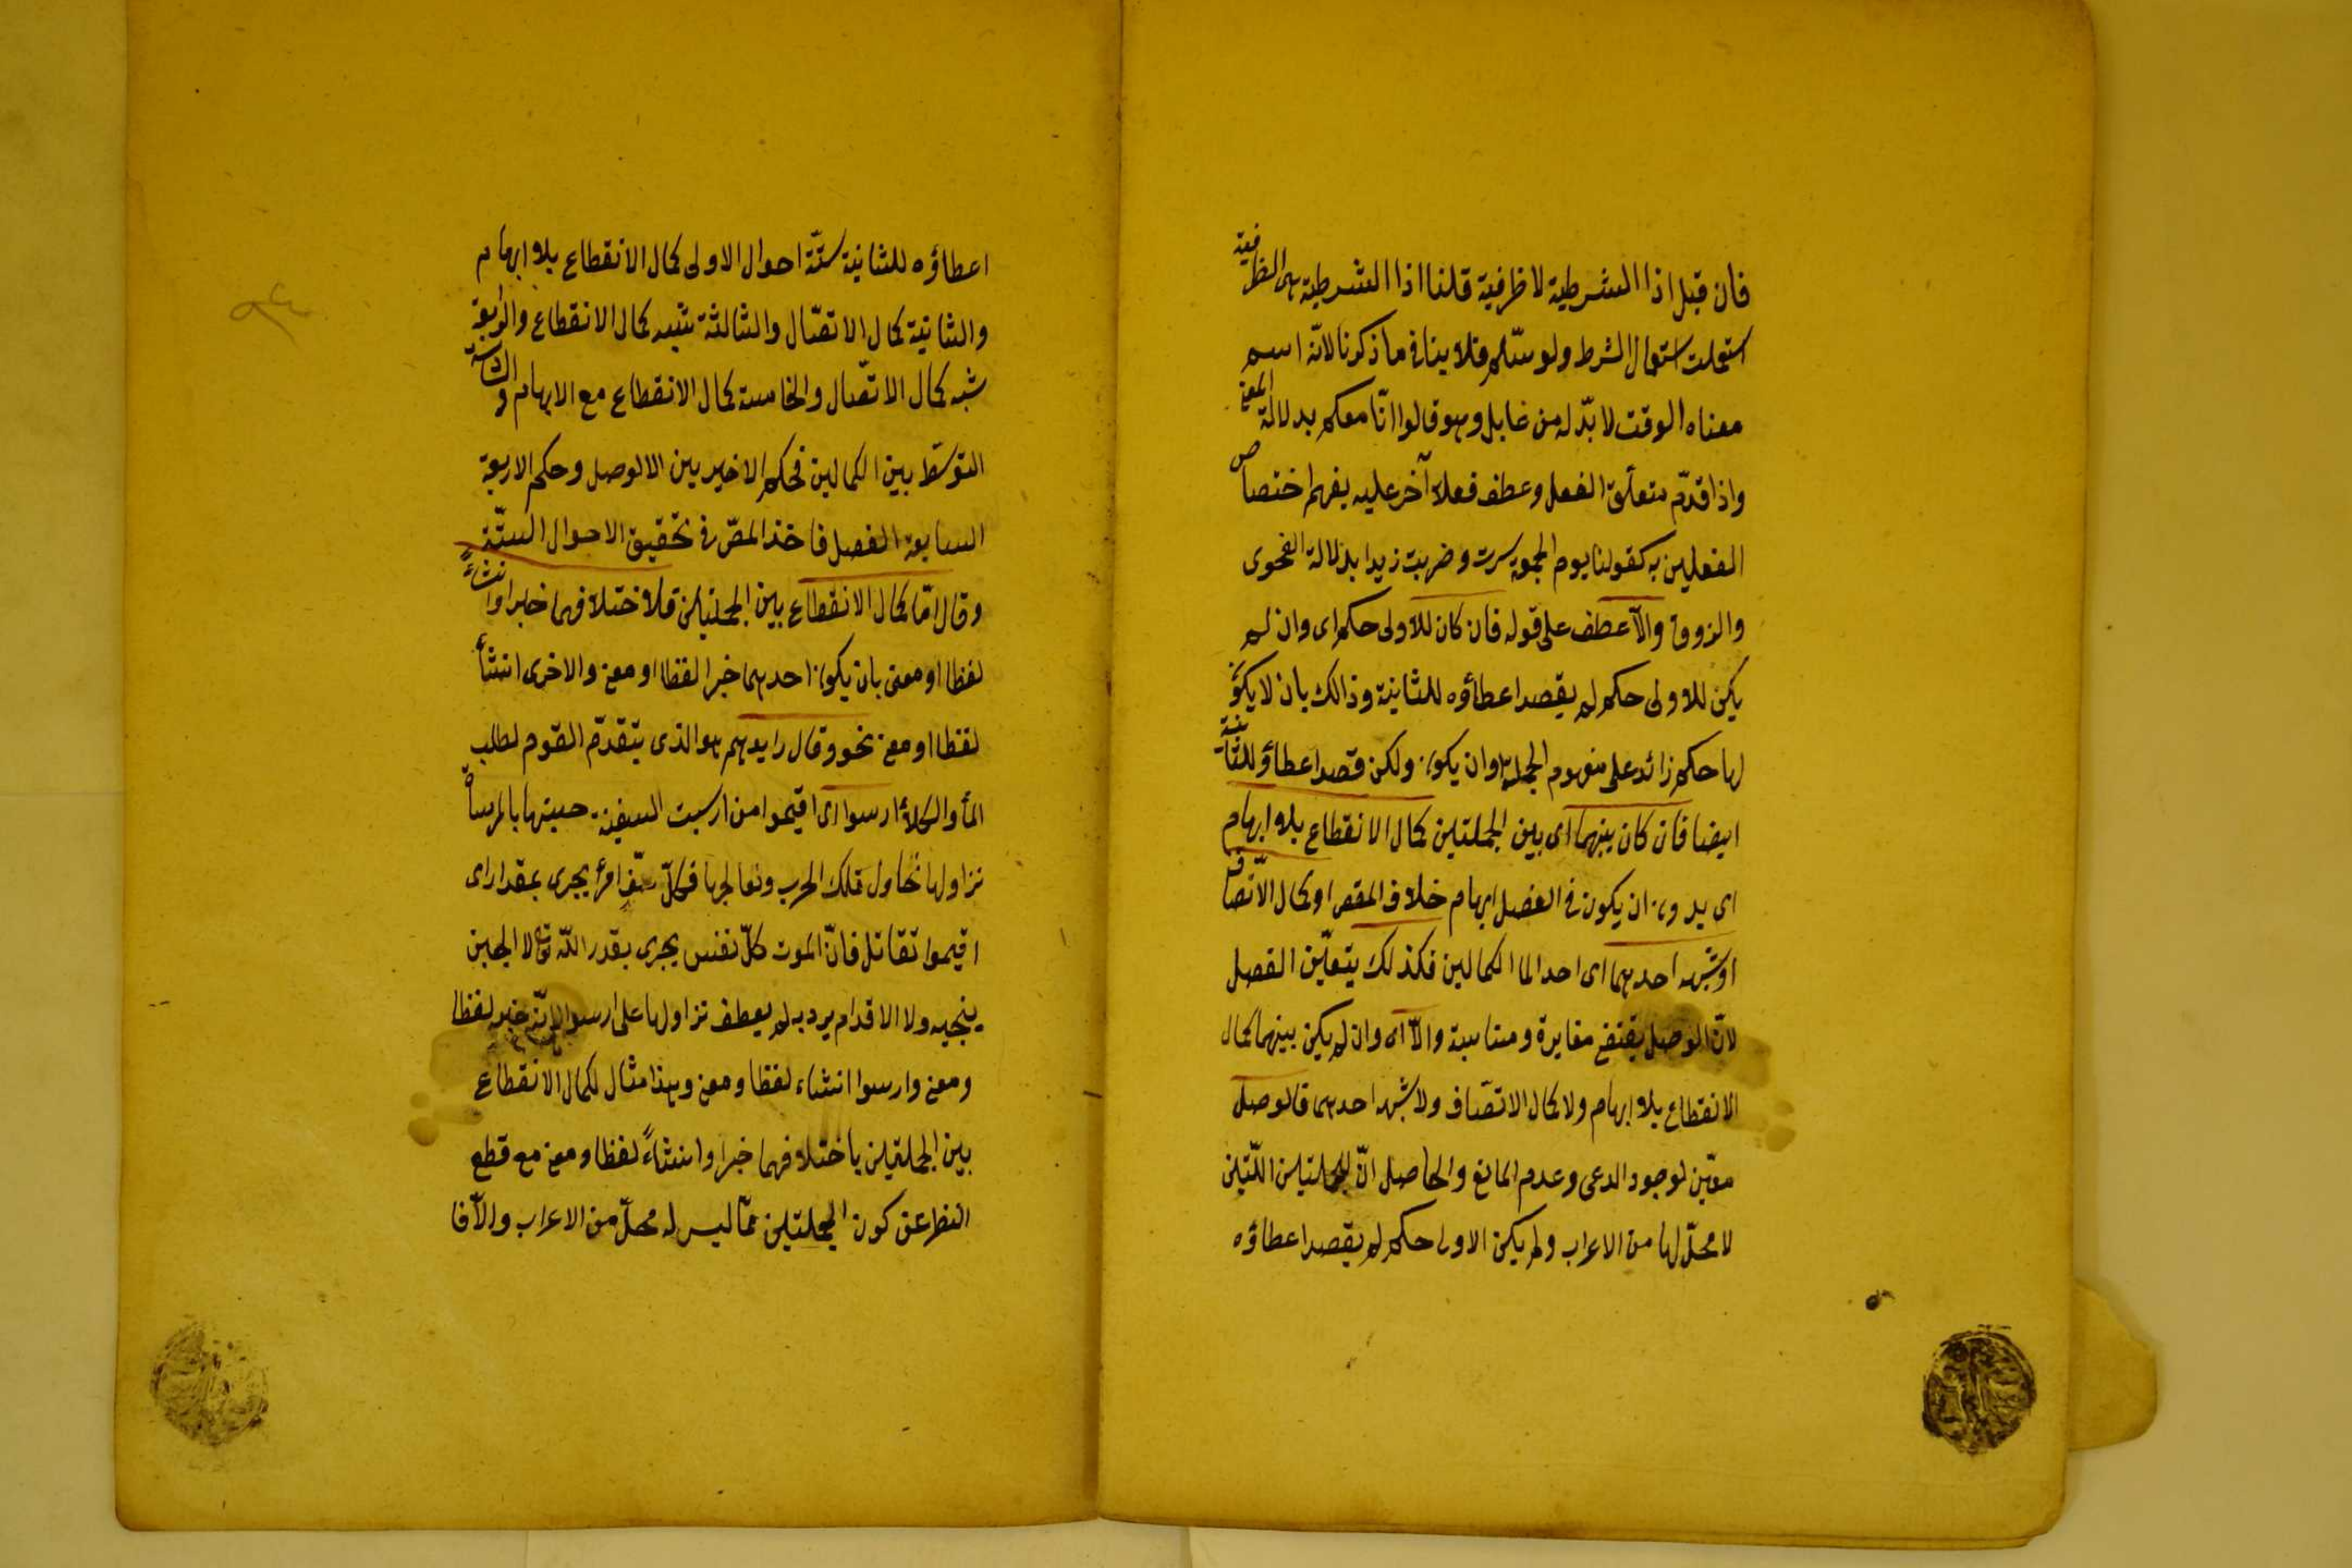 فان قيل اذا الشرطية لا ظرفية قلنا اذا الشرطية هى الظرفية
استعملت استعمال الشرط ولو سلّم فلا ينافى ما ذكرنا لانّه اسم
معناه الوقت لا بدّ له من عامل وهو قالوا انّا معكم بدلالة المعنى
واذا قدّم متعلّق الفعل وعطف فعلا آخر عليه يفهم اختصاص
الفعلين به كقولنا يوم الجمعة سرت وضربت زيدا بدلالة الفحوى
والذوق والّا عطف على قوله فان كان للاولى حكم اى وان لم
يكن للاولى حكم لم يقصد اعطاؤه للثانية وذالك بان لا يكون
لها حكم زائد على مفهوم الجملة او ان يكون ولكن قصد اعطاؤ للثانية
ايضا فان كان بينهما اى بين الجملتين كمال الانقطاع بلا ابهام
اى بدون ان يكون فى الفصل ابهام خلاف المقص او كمال الاتّصاف
او شبه احدهما اى احد الما الكمالين فكذلك يتعيّن الفصل
لانّ الوصل يقتضى مغايرة ومناسبة والّا اى وان لم يكن بينهما كمال
الانقطاع بلا ابهام ولا كمال الاتّصاف ولا شبه احدهما فالوصل
معيّن لوجود الدعى وعدم المانع والحاصل انّ للجملتين اللّتين
لا محلّ لها من الاعراب ولم يكن الاولى حكم لم يقصد اعطاؤه
اعطاؤه للثانية ستّة احوال الاولى كمال الانقطاع بلا ابهام
والثانية كمال الاتّصال والثالثة شبه كمال الانقطاع والرابعة
شبه كمال الاتّصال والخامسة كمال الانقطاع مع الابهام والسادسة
التوسّط بين الكمالين فحكم الاخيريين الالوصل وحكم الاربعة
السابعة الفصل فاخذ المصّ فى تحقيق الاحوال الستّة
وقال امّا كمال الانقطاع بين الجملتين فلاختلافهما خبرا وانشاءً
لفظا او معنى بان يكون احدهما خبرا لفظا او معنى والاخرى انشأ
لفظا او معنى نحو وقال رايدهم هو الذى يتقدّم القوم لطلب
المأ والكلأ ارسوا اى اقيموا من ارسيت السفينة حبستها بالمرساة
نزاولها نحاول تلك الحرب ونعالجها فكلّ حتف امرأ يجرى بمقدار اى
اقيموا تقاتل فانّ الموت كلّ نفس يجرى بقدر اللّه تع لا الجبن
ينجيه ولا الاقدام يرديه لم يعطف نزاولها على ارسوا لانّه خبر لفظا
ومعنى وارسوا انشاء لفظا ومعنى وهذا مثال لكمال الانقطاع
بين الجملتين باختلافهما خبرا وانشاءً لفظا ومعنى مع قطع
النظر عن كون الجملتين ممّا ليس له محلّ من الاعراب والّا فا